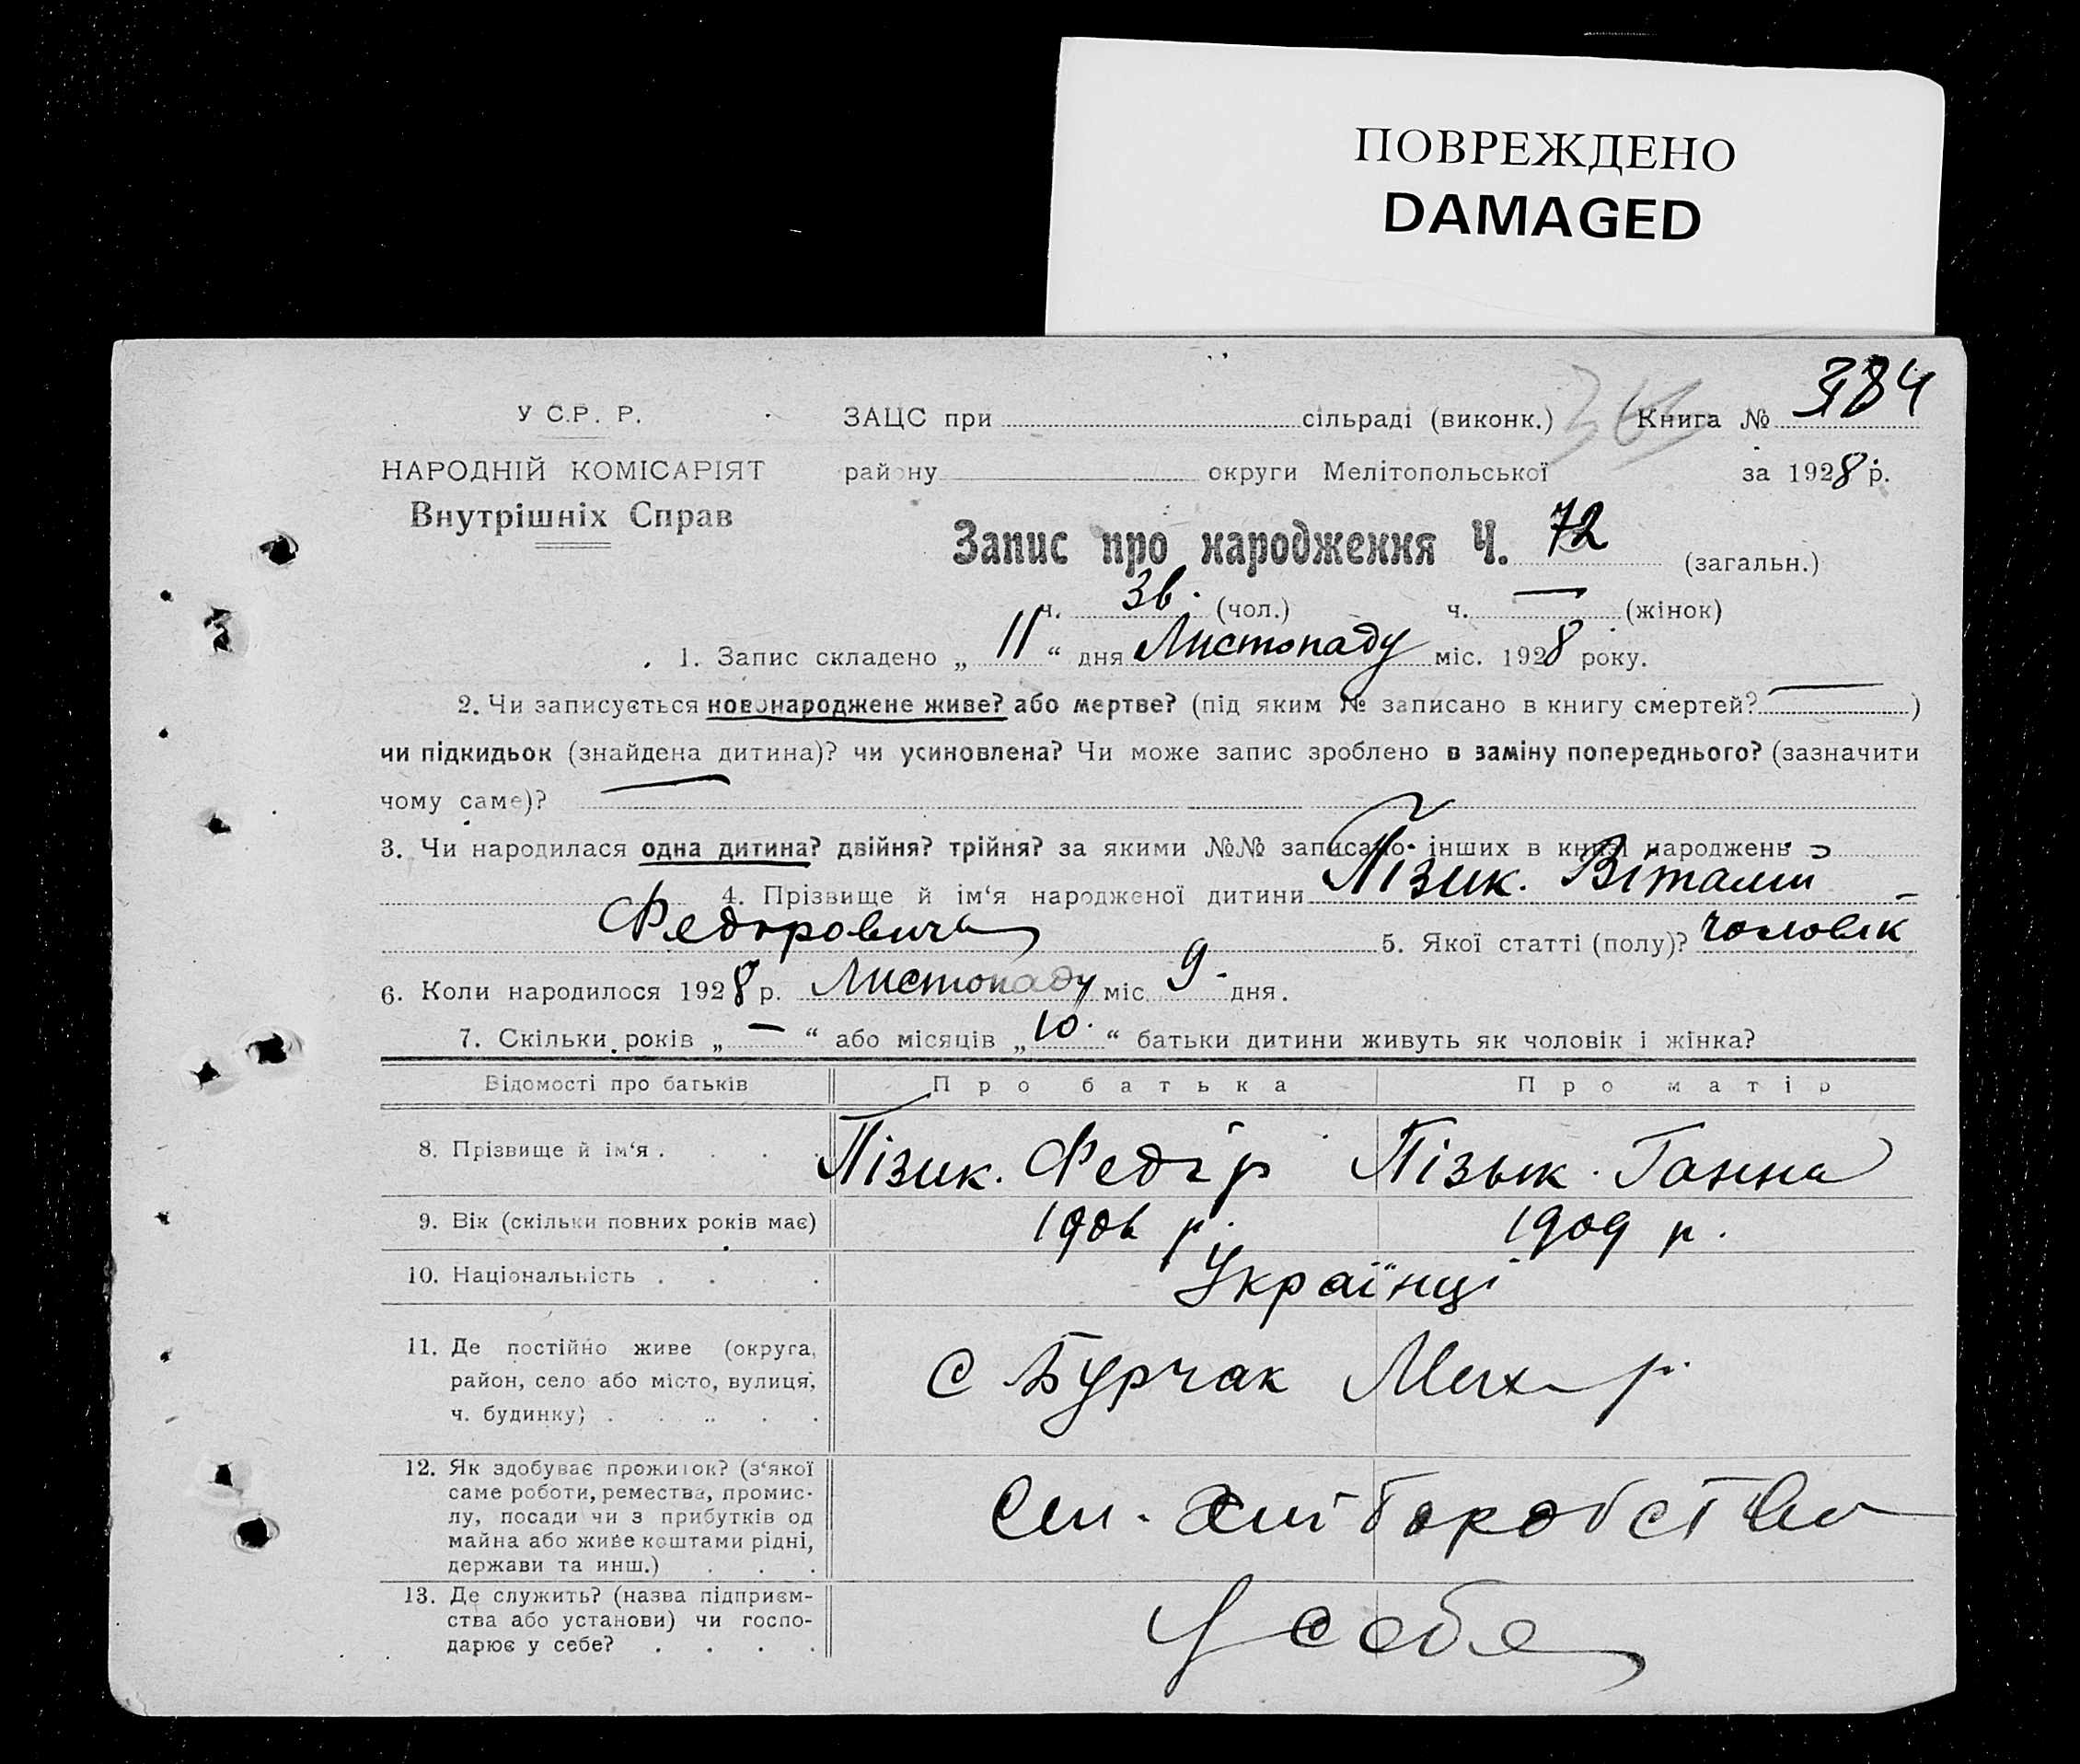 ПОВРЕЖДЕНО
DAMAGED
У С.Р. Р.
НАРОДНІЙ КОМІСАРІЯТ
Внутрішніх Справ
ЗАЦС при сільраді (виконк.) Книга № 384
району округи Мелітопольської за 1928 р.
Запис про народження Ч. 72 (загальн.)
ч. 36. (чол.) ч. — (жінок)
1. Запис складено „ 11 “ дня Листопаду міс. 1928 року.
2. Чи записується новонароджене живе? або мертве? (під яким № записано в книгу смертей? — )
чи підкидьок (знайдена дитина)? чи усиновлена? Чи може запис зроблено в заміну попереднього? (зазначити
чому саме)? —
3. Чи народилася одна дитина? двійня? трійня? за якими №№ записано інших в книзі народжень
4. Прізвище й ім‘я народженої дитини Пізик. Віталий
Федорович 5. Якої статті (полу)? чоловік
6. Коли народилося 1928 р. Листопаду міс. 9. дня.
7. Скільки років „ — “ або місяців „ 10. “ батьки дитини живуть як чоловік і жінка?
Відомості про батьків Про батька Про матір
8. Прізвище й ім‘я . Пізик. Федір Пізык. Ганна
9. Вік (скільки повних років має) 1906 р. 1909 р.
10. Національність . Українці
11. Де постійно живе (округа,
район, село або місто, вулиця,
ч. будинку) . с Бурчак Мих р.
12. Як здобуває прожиток? (з‘якої
саме роботи, ремества, промис-
лу, посади чи з прибутків од
майна або живе коштами рідні,
держави та инш.) Сил.
13. Де служить? (назва підприєм-
ства або установи) чи госпо-
дарює у себе? . У себе